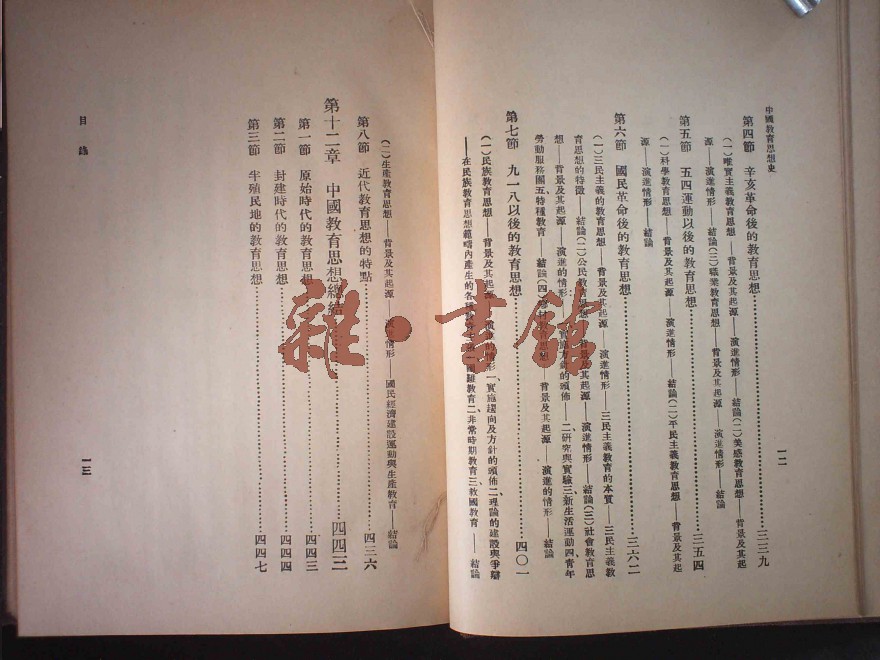 中國教育思想史
一二
第四節 辛亥革命後的教育思想……三三九
(一)唯實主義教育思想——背景及其起源——演進情形——結論(二)美感教育思想——背景及其起
源——演進情形——結論(三)職業教育思想——背景及其起源——演進情形——結論
第五節 五四運動以後的教育思想……三五四
(一)科學教育思想——背景及其起源——演進情形——結論(二)平民主義教育思想——背景及其起
源——演進情形——結論
第六節 國民革命後的教育思想……三六二
(一)三民主義的教育思想——背景及其起源——演進情形——三民主義教育的本質——三民主義教
育思想的特徵——結論(二)公民教育思想——背景及其起源——演進情形——結論(三)社會教育思
想——背景及其起源——演進的情形——實施方針的頒佈——二、研究與實驗三、新生活運動四、青年
勞動服務團五、特種教育——結論(四)鄉村教育思想——背景及其起源——演進的情形——結論
第七節 九一八以後的教育思想……四〇一
(一)民族教育思想——背景及其起源——演進的情形一、實施趨向及方針的頒佈二、理論的建設與爭辯
——在民族教育思想範疇內產生的各種教育主張一、國難教育二、非常時期教育三、救國教育——結論
(二)生產教育思想——背景及其起源——演進情形——國民經濟建設運動與生產教育——結論
第八節 近代教育思想的特點……四三六
第十二章 中國教育思想總結……四四三
第一節 原始時代的教育思想……四四三
第二節 封建時代的教育思想……四四四
第三節 半殖民地的教育思想……四四七
目錄
一三
雜·書館